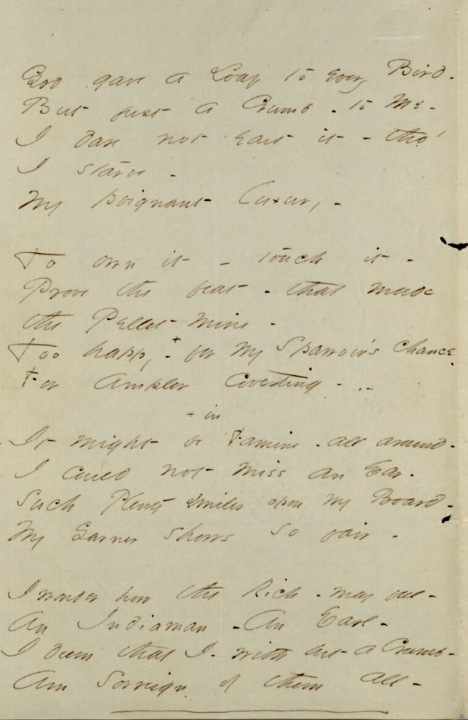 God gave a Loaf to every Bird -
But just a Crumb - to Me -
I dare not eat it - tho'
I starve -
My poignant luxury -
To own it - touch it -
Prove the feat - that made
the Pellet mine -
Too happy - + for my Sparrow's chance
+ For Ampler Coveting -
+ in
It might be Famine - all around -
I could not miss an Ear -
Such Plenty smiles upon my Board -
My Garner shows so fair -
I wonder how the Rich - may feel -
An Indiaman - An Earl -
I deem that I - with but a Crumb -
Am Sovreign of them all -